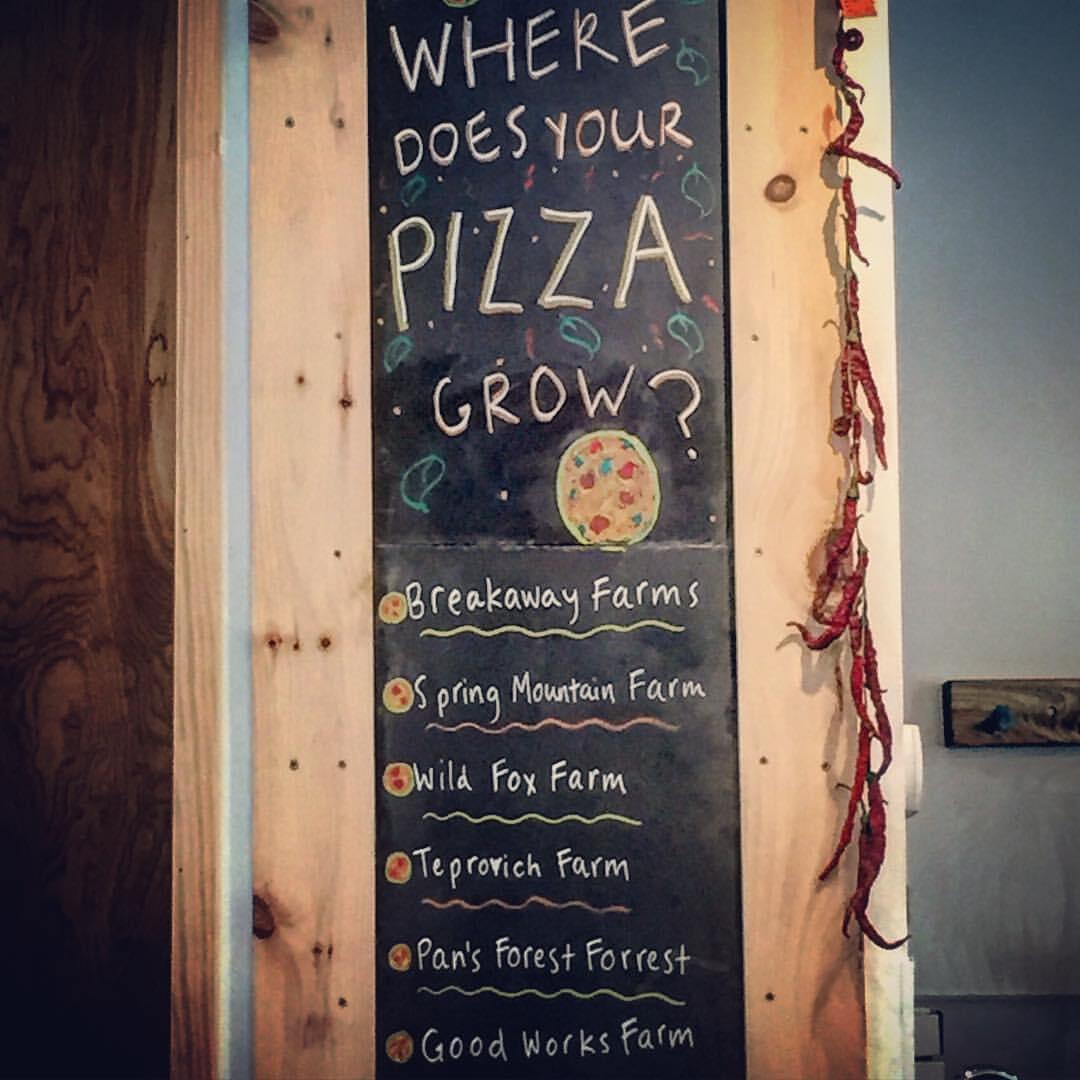 WHERE
DOES YOUR
PIZZA
GROW?
Breakaway Farms
Spring Mountain Farm
Wild Fox Farm
Teprovich Farm
Pan's Forest Forrest
Good Works Farm